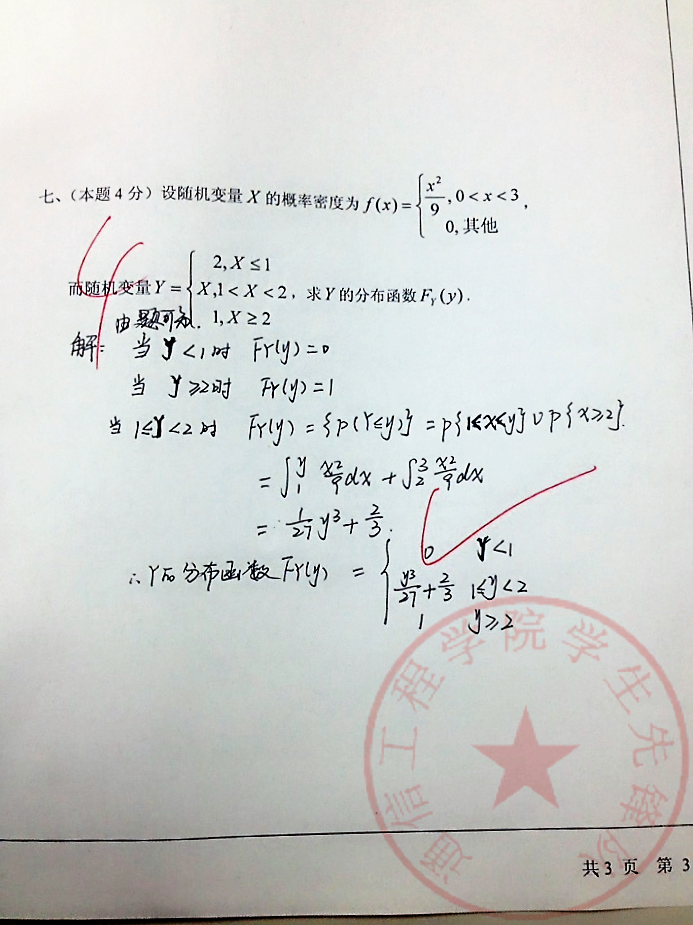 七、（本题 4 分）设随机变量 X 的概率密度为 f(x)={ x²/9, 0<x<3 ; 0, 其他 ,
而随机变量 Y={ 2, X≤1 ; X,1<X<2 ; 1, X≥2 , 求 Y 的分布函数 F_Y(y).
4
解: 由题可知.
当 y<1时 FY(y)=0
当 y≥2时 FY(y)=1
当 1≤y<2时 FY(y)={P(Y≤y)}=P{1≤x≤y}∪P{x≥2}.
=∫₁^y x²/9 dx + ∫₂³ x²/9 dx
= 1/27 y³ + 2/3.
∴Y的分布函数FY(y) = { 0 y<1
y³/27+2/3 1≤y<2
1 y≥2
通信工程学院学生先锋队
共 3 页 第 3